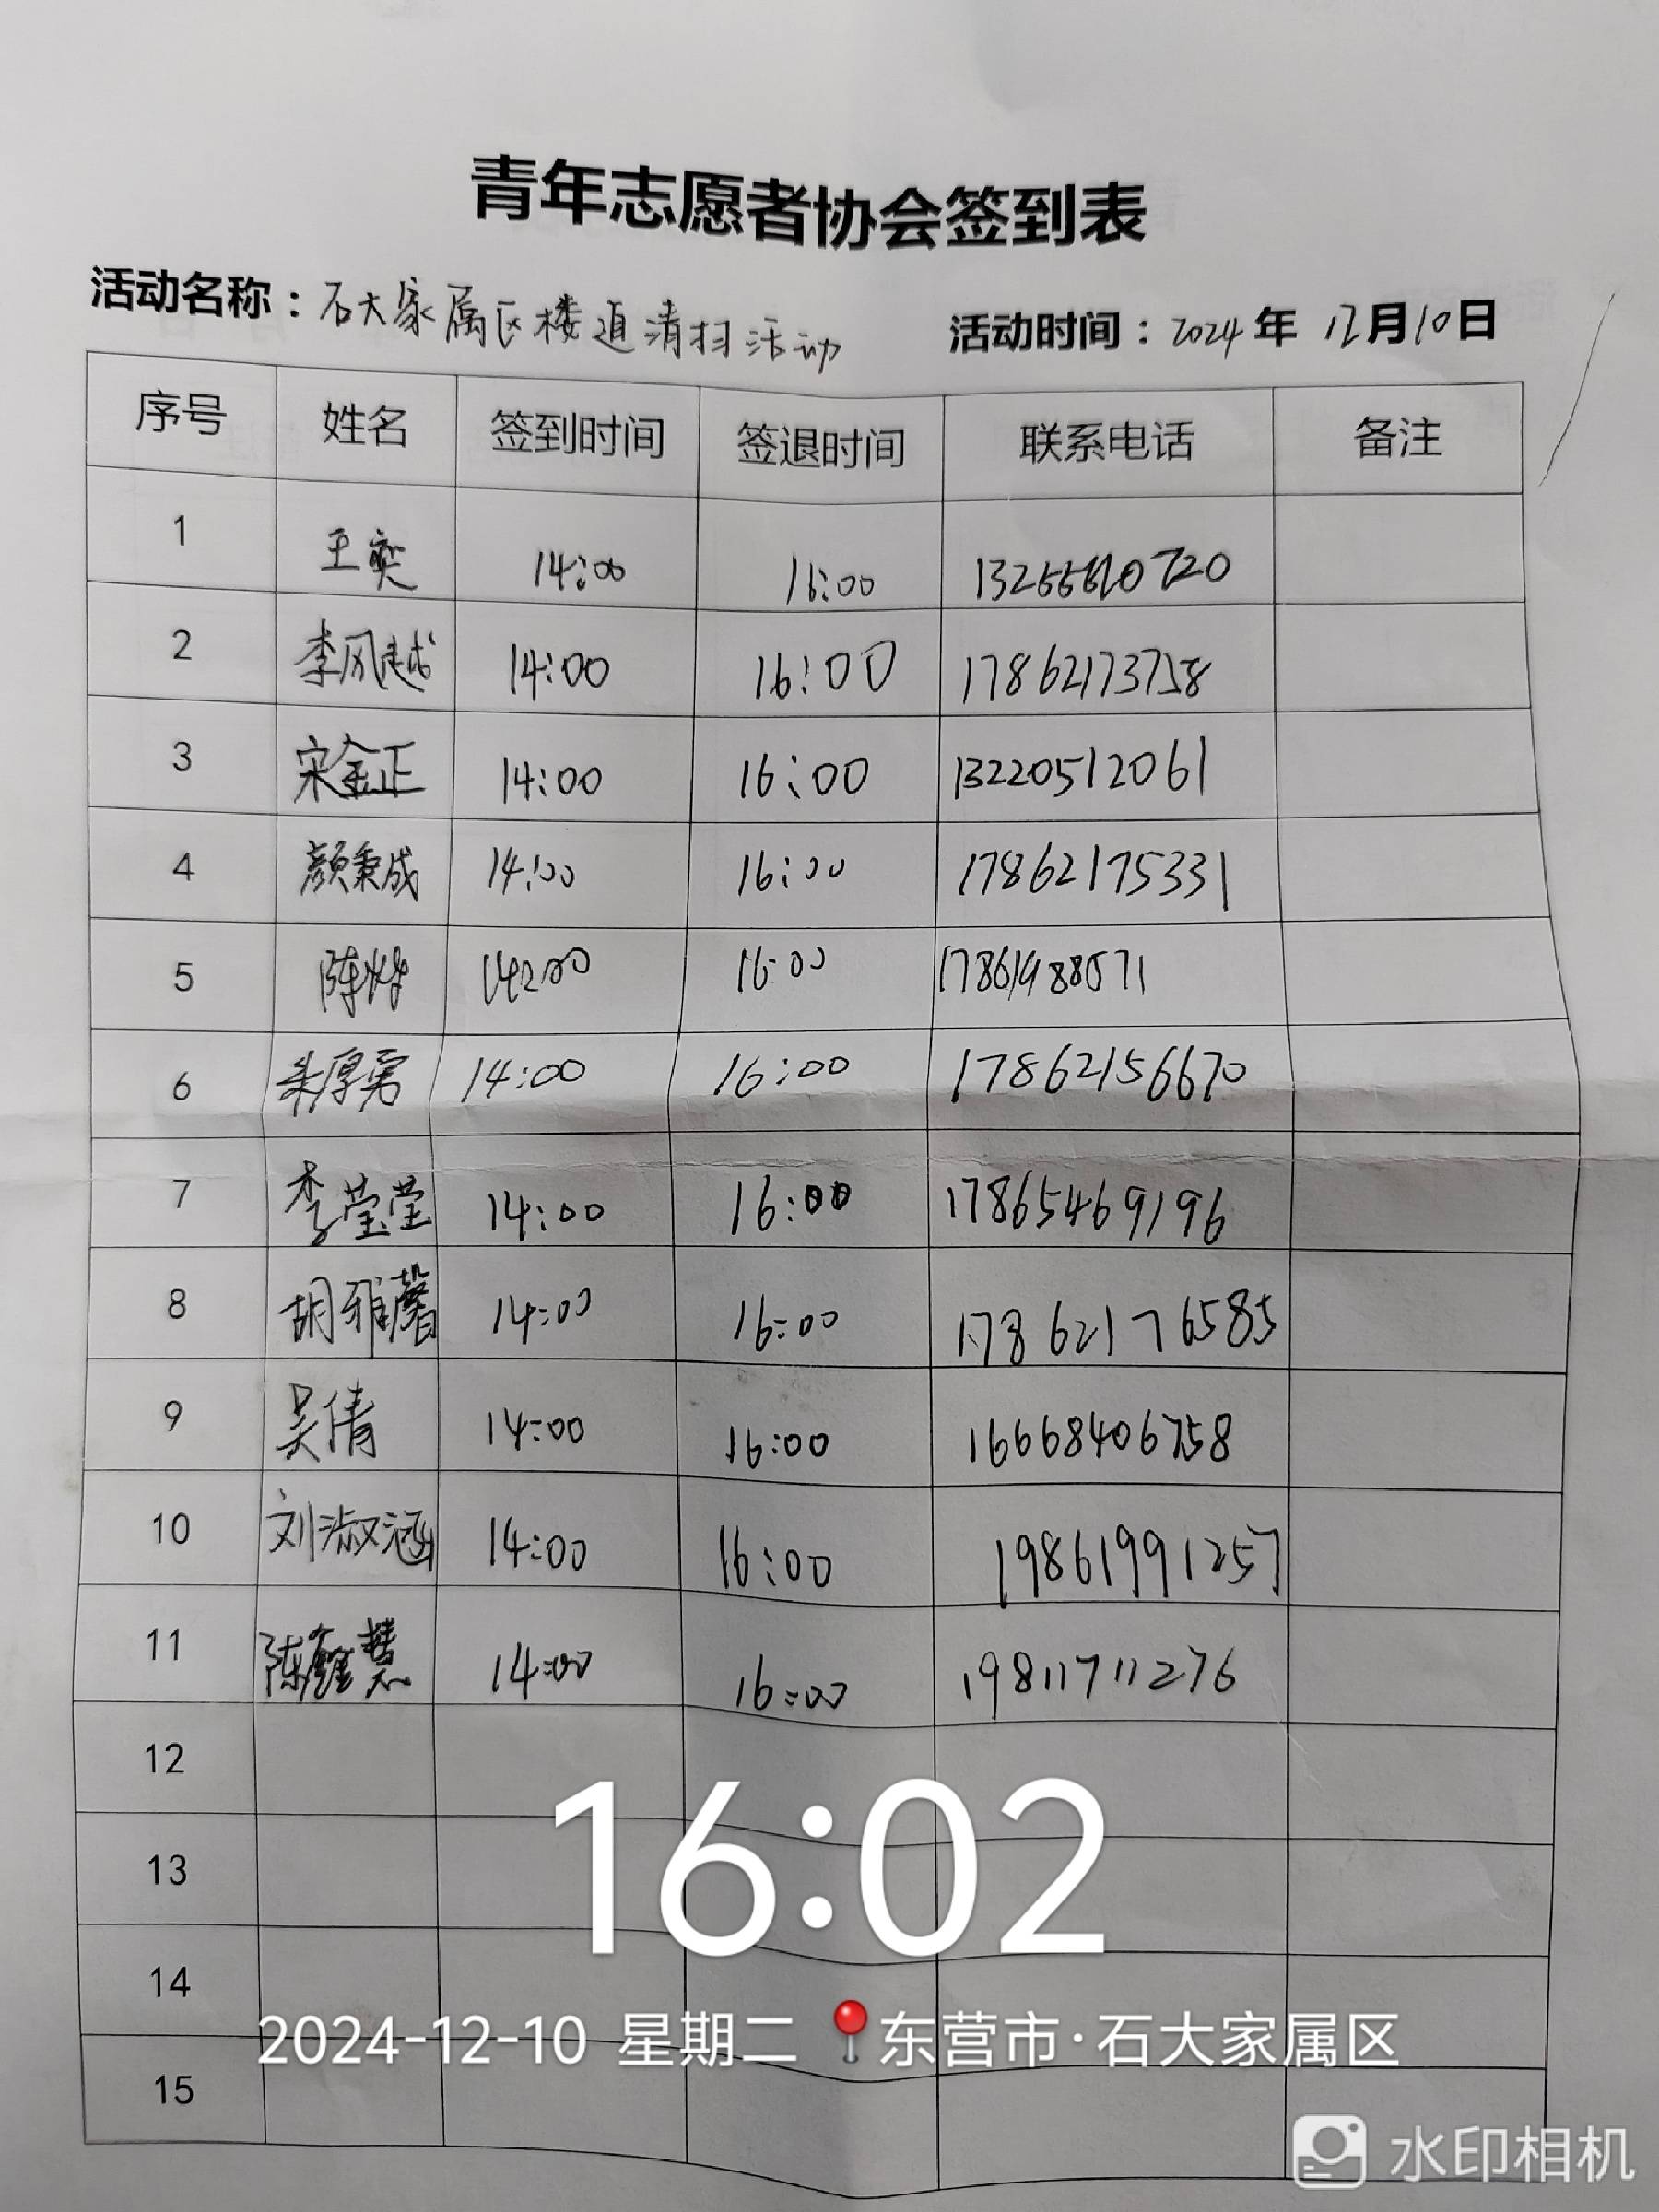 青年志愿者协会签到表
活动名称：石大家属区楼道清扫活动 活动时间：2024年 12月10日
序号 姓名 签到时间 签退时间 联系电话 备注
1 王奕 14:00 16:00
2 李风越 14:00 16:00 17862173758
3 宋金正 14:00 16:00 13220512061
4 颜秉成 14:00 16:00 17862175331
5 陈烨 14:00 16:00 17861988071
6 朱厚勇 14:00 16:00 17862156670
7 李莹莹 14:00 16:00 17865469196
8 胡雅馨 14:00 16:00 17862176585
9 吴倩 14:00 16:00 16668406758
10 刘淑涵 14:00 16:00 19861991257
11 陈鑫慧 14:00 16:00 19811711276
12
13
16:02
14
2024-12-10 星期二 东营市·石大家属区
15
水印相机